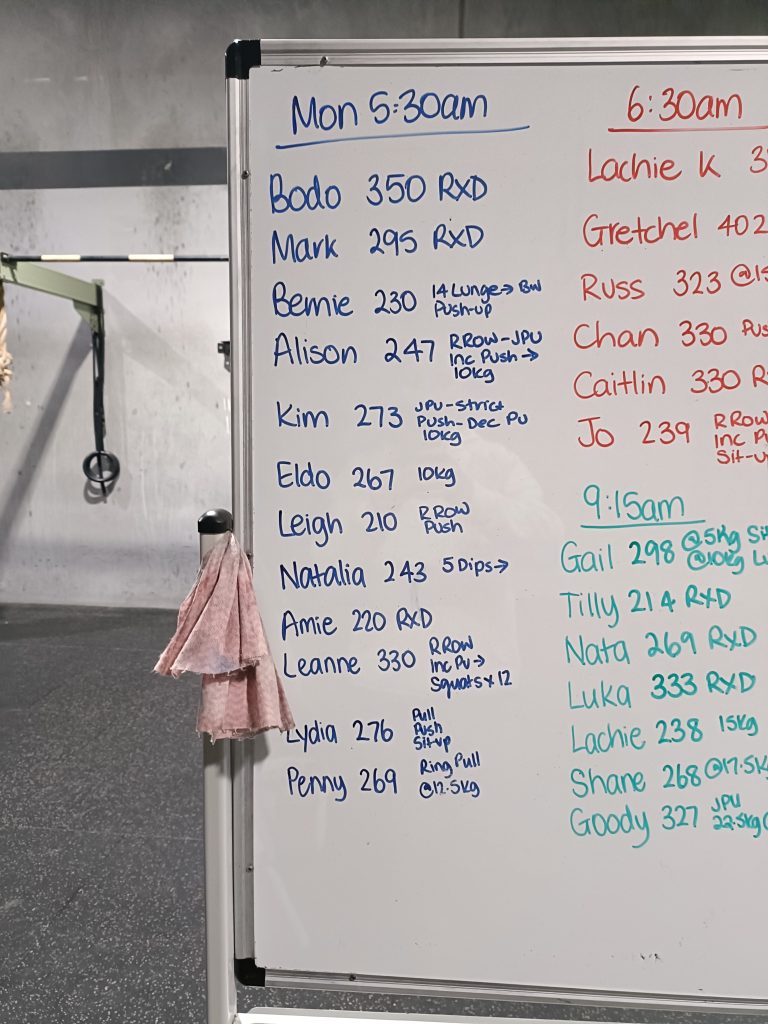 Mon 5:30am
Bodo 350 RXD
Mark 295 RXD
Bernie 230 14 Lunge→ BW
Push-up
Alison 247 RRow-JPU
Inc Push→
10kg
Kim 273 JPU-Strict
Push-Dec PU
10kg
Eldo 267 10kg
Leigh 210 RRow
Push
Natalia 243 5 Dips→
Amie 220 RXD
Leanne 330 RRow
Inc PU→
Squats x 12
Lydia 276 Pull
Push
Situp
Penny 269 Ring Pull
@12.5kg
6:30am
Lachie K
Gretchel 402
Russ 323
Chan 330
Caitlin 330
Jo 239 RRow
Inc
9:15am
Gail 298 @5kg
@10kg
Tilly 214 RXD
Nata 269 RXD
Luka 333 RXD
Lachie 238 15kg
Shane 268 @17.5kg
Goody 327 JPU
22.5kg